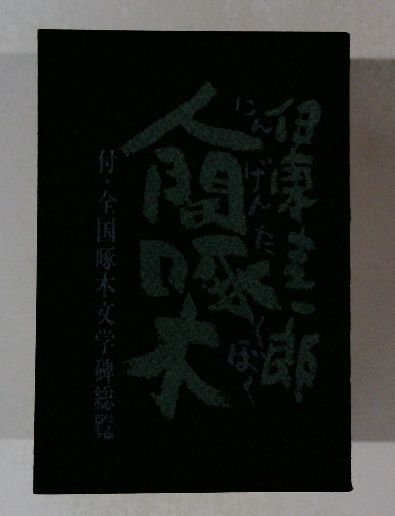 伊東圭一郎
にんげんたくぼく
人間啄木
付・全国啄木文学碑総覧